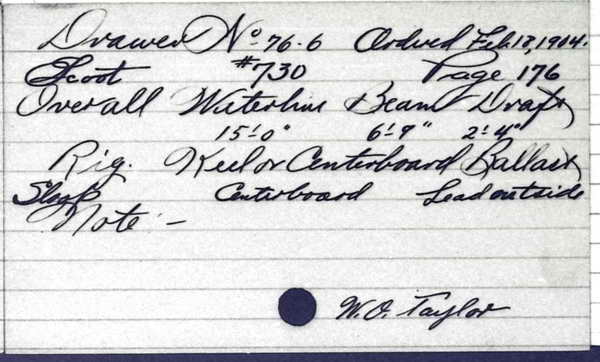 Drawer No 76-6 Ordered Feb. 18, 1904.
Scoot #730 Page 176
Over all Waterline Beam Draft
15'-0" 6'-9" 2'-4"
Rig. Keel or Centerboard Ballast
Sloop Centerboard Lead outside
Note -
W.O. Taylor